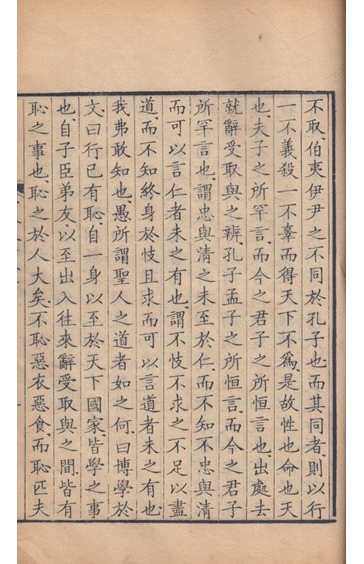 不取伯夷伊尹之不同於孔子也而其同者則以行
一不義殺一不辜而得天下不為是故性也命也天
也夫子之所罕言而今之君子之所恒言也出處去
就辭受取與之辨孔子孟子之所恒言而今之君子
所罕言也謂忠與清之未至於仁而不知不忠與清
而可以言仁者未之有也謂不忮不求之不足以盡
道而不知終身於忮且求而可以言道者未之有也
我弗敢知也愚所謂聖人之道者如之何曰博學於
文曰行已有恥自一身以至於天下國家皆學之事
也自子臣弟友以至出入往來辭受取與之間皆有
恥之事也恥之於人大矣不恥惡衣惡食而恥匹夫